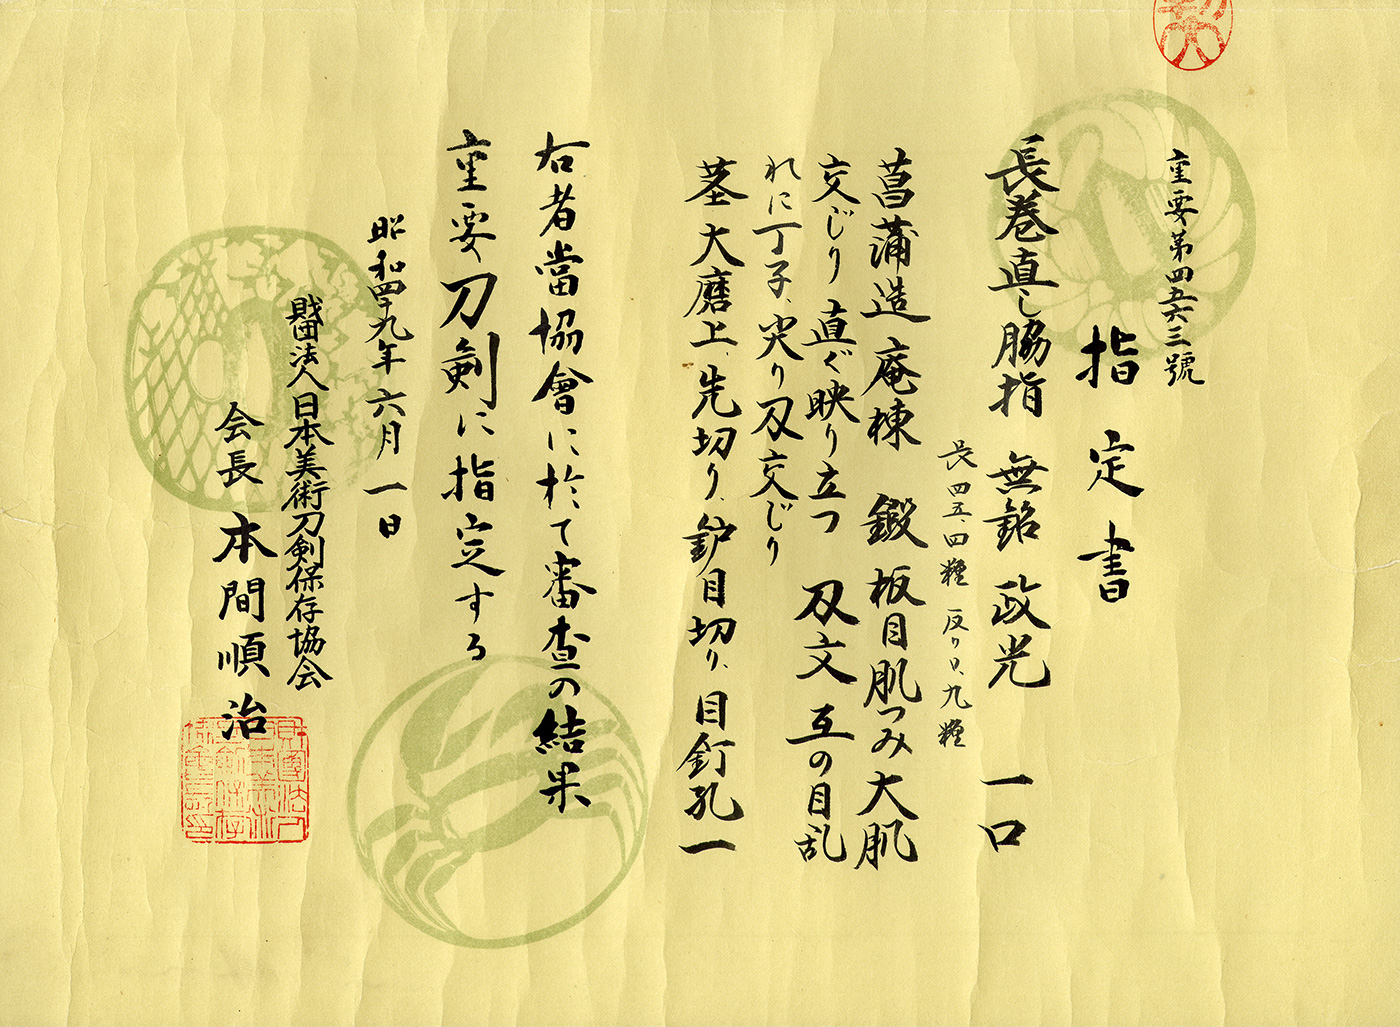 重要第四五六三號
指定書
長巻直し脇指 無銘 政光 一口
長 四五、四糎 反り 〇、九糎
菖蒲造 庵棟 鍛 板目肌つみ大肌
交じり 直ぐ映り立つ 刄文 互の目乱
れに丁子、尖り刄交じり
茎大磨上、先切り、鈩目切り、目釘孔一
右者當協會に於て審査の結果
重要刀剣に指定する
昭和四十九年六月一日
財団法人日本美術刀剣保存協会
会長 本間順治